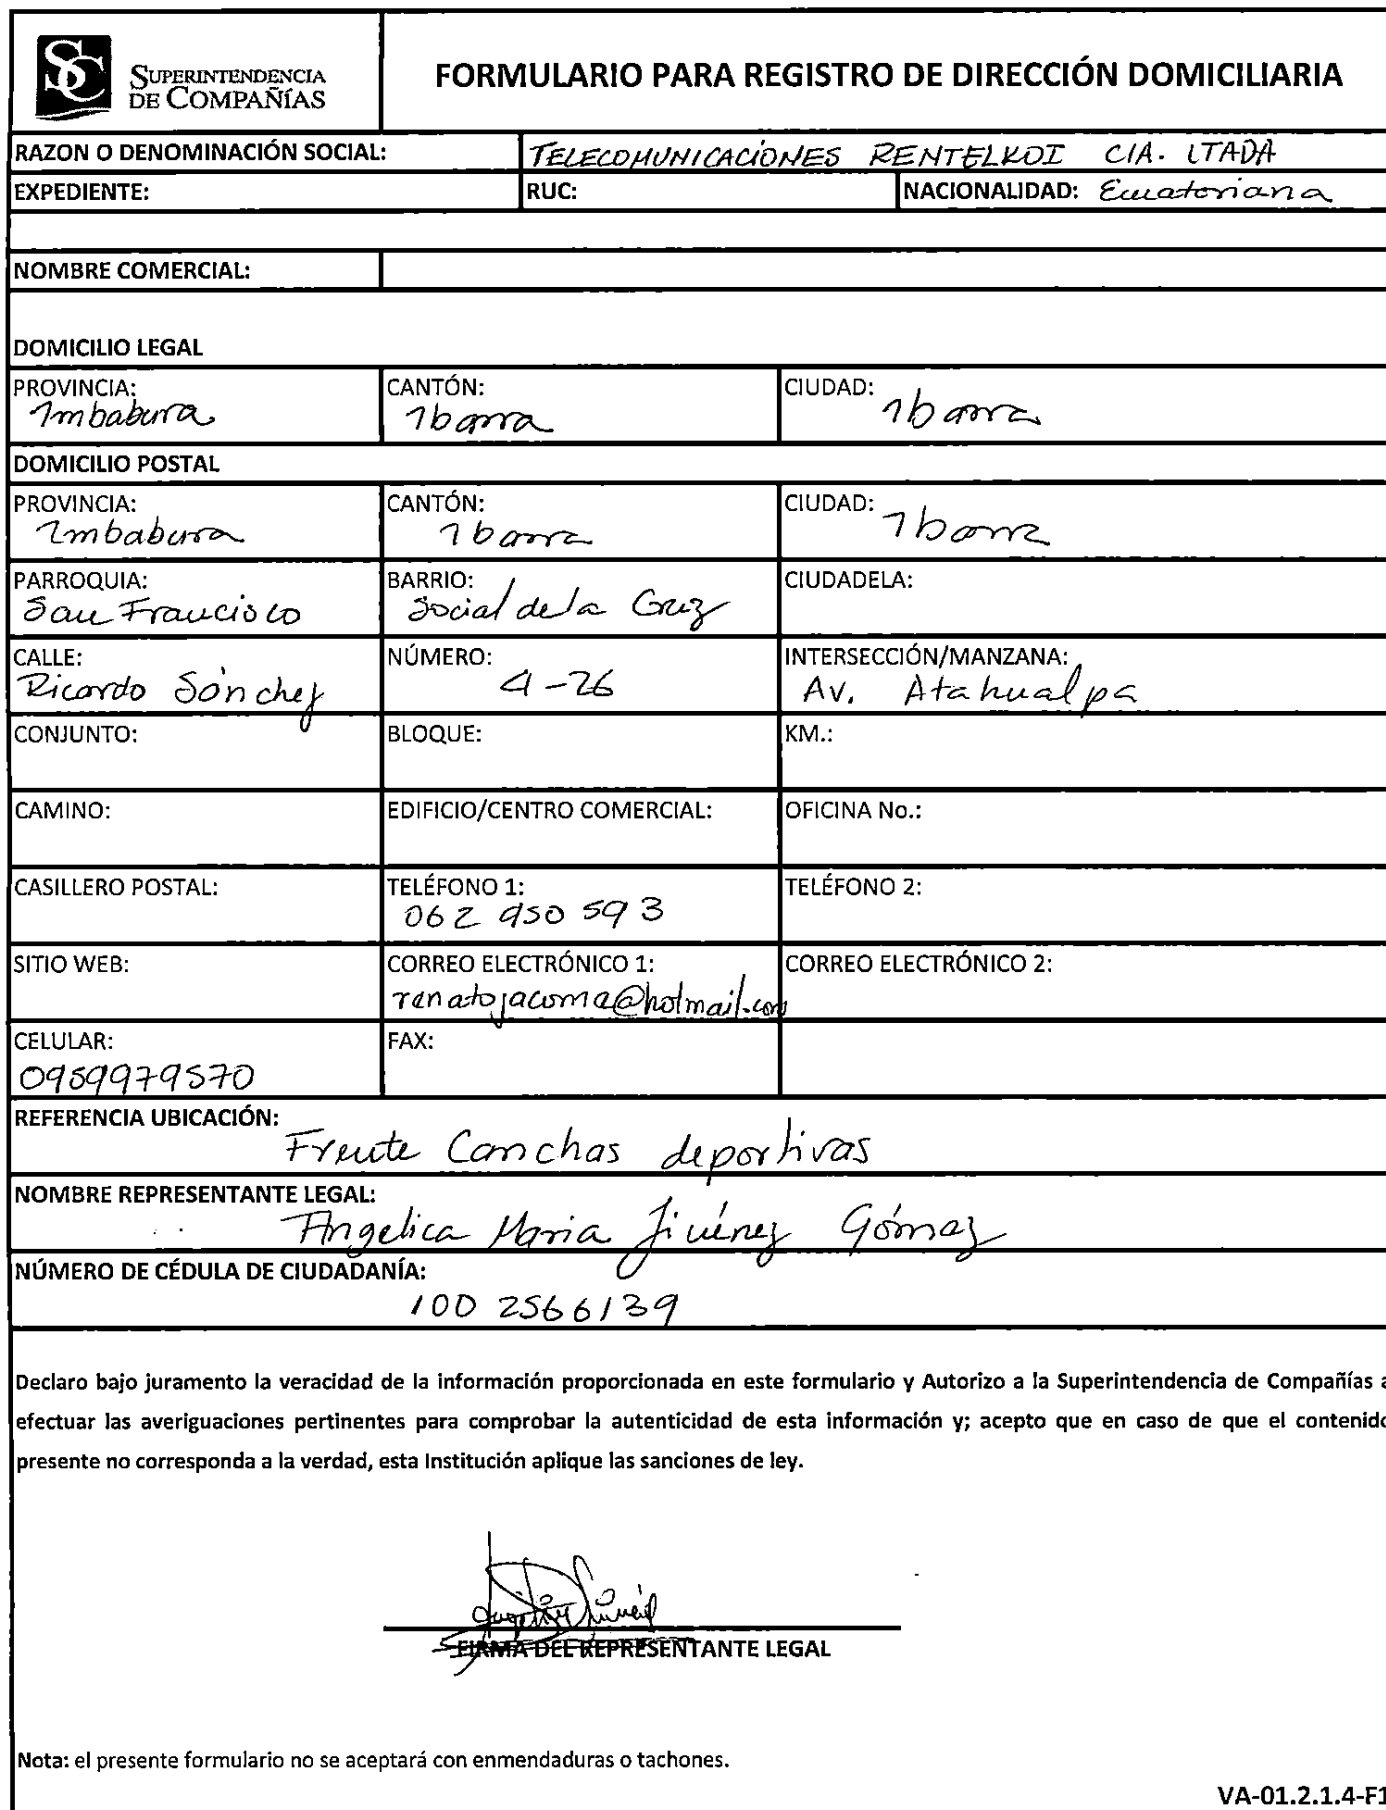 SC SUPERINTENDENCIA
DE COMPAÑÍAS
FORMULARIO PARA REGISTRO DE DIRECCIÓN DOMICILIARIA
RAZON O DENOMINACIÓN SOCIAL: TELECOMUNICACIONES RENTELKOI CIA. LTADA
EXPEDIENTE: RUC: NACIONALIDAD: Ecuatoriana
NOMBRE COMERCIAL:
DOMICILIO LEGAL
PROVINCIA: CANTÓN: CIUDAD:
Imbabura Ibarra Ibarra
DOMICILIO POSTAL
PROVINCIA: CANTÓN: CIUDAD:
Imbabura Ibarra Ibarra
PARROQUIA: BARRIO: CIUDADELA:
San Francisco Social de la Cruz
CALLE: NÚMERO: INTERSECCIÓN/MANZANA:
Ricardo Sánchez 4-26 Av. Atahualpa
CONJUNTO: BLOQUE: KM.:
CAMINO: EDIFICIO/CENTRO COMERCIAL: OFICINA No.:
CASILLERO POSTAL: TELÉFONO 1: TELÉFONO 2:
062 950 593
SITIO WEB: CORREO ELECTRÓNICO 1: CORREO ELECTRÓNICO 2:
renatojacoma@hotmail.com
CELULAR: FAX:
0959979570
REFERENCIA UBICACIÓN:
Frente Canchas deportivas
NOMBRE REPRESENTANTE LEGAL:
Angelica Maria Jiménez Gómez
NÚMERO DE CÉDULA DE CIUDADANÍA:
100 2566139
Declaro bajo juramento la veracidad de la información proporcionada en este formulario y Autorizo a la Superintendencia de Compañías a
efectuar las averiguaciones pertinentes para comprobar la autenticidad de esta información y; acepto que en caso de que el contenido
presente no corresponda a la verdad, esta Institución aplique las sanciones de ley.
FIRMA DEL REPRESENTANTE LEGAL
Nota: el presente formulario no se aceptará con enmendaduras o tachones.
VA-01.2.1.4-F1